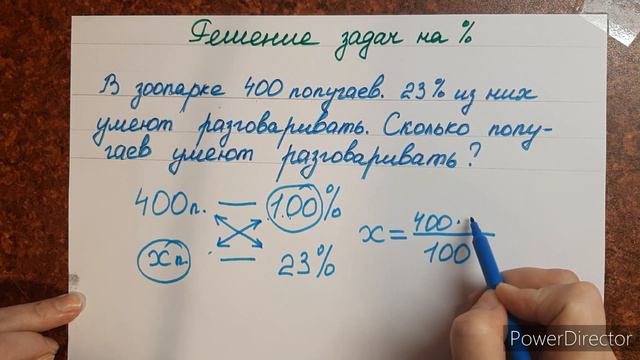 Решение задач на %
В зоопарке 400 попугаев. 23% из них
умеют разговаривать. Сколько попу-
гаев умеют разговаривать?
400п. — 100%
xп. — 23%
x = 400 ·
100
PowerDirector